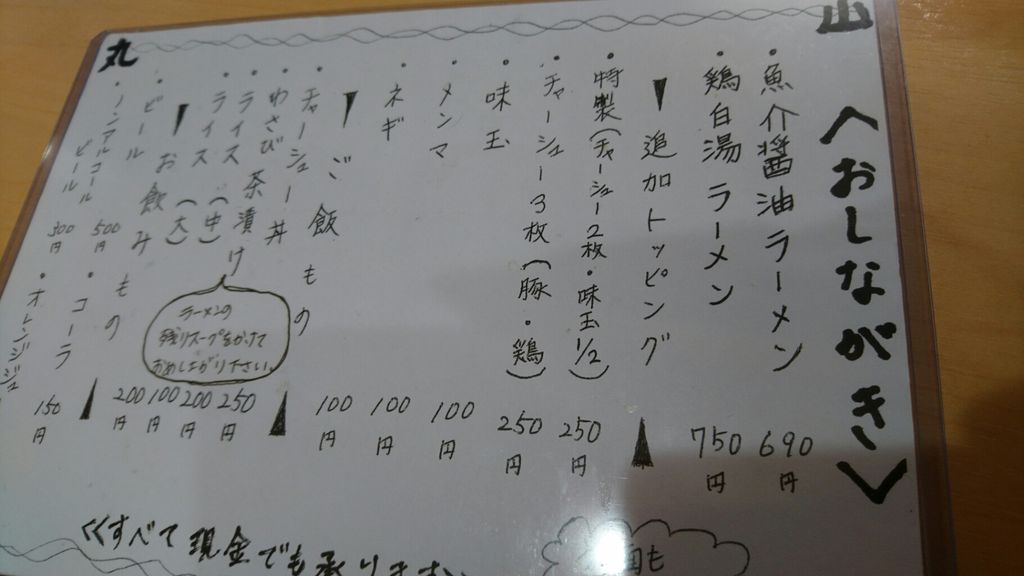 山
丸
〈おしながき〉
・魚介醤油ラーメン 690円
・鶏白湯ラーメン 750円
▼追加トッピング▲
・特製(チャーシュー2枚・味玉1/2) 250円
・チャーシュー3枚(豚・鶏) 250円
・味玉 100円
・メンマ 100円
・ネギ 100円
▼ご飯もの▲
・チャーシュー丼 250円
・わさび茶漬け 200円
・ライス(中) 100円
・ライス(大) 200円
ラーメンの
残りスープをかけて
おめしあがり下さい。
▼お飲みもの▲
・ビール 500円
・ノンアルコールビール 300円
・コーラ
・オレンジジュ
150円
くすべて現金でも承ります